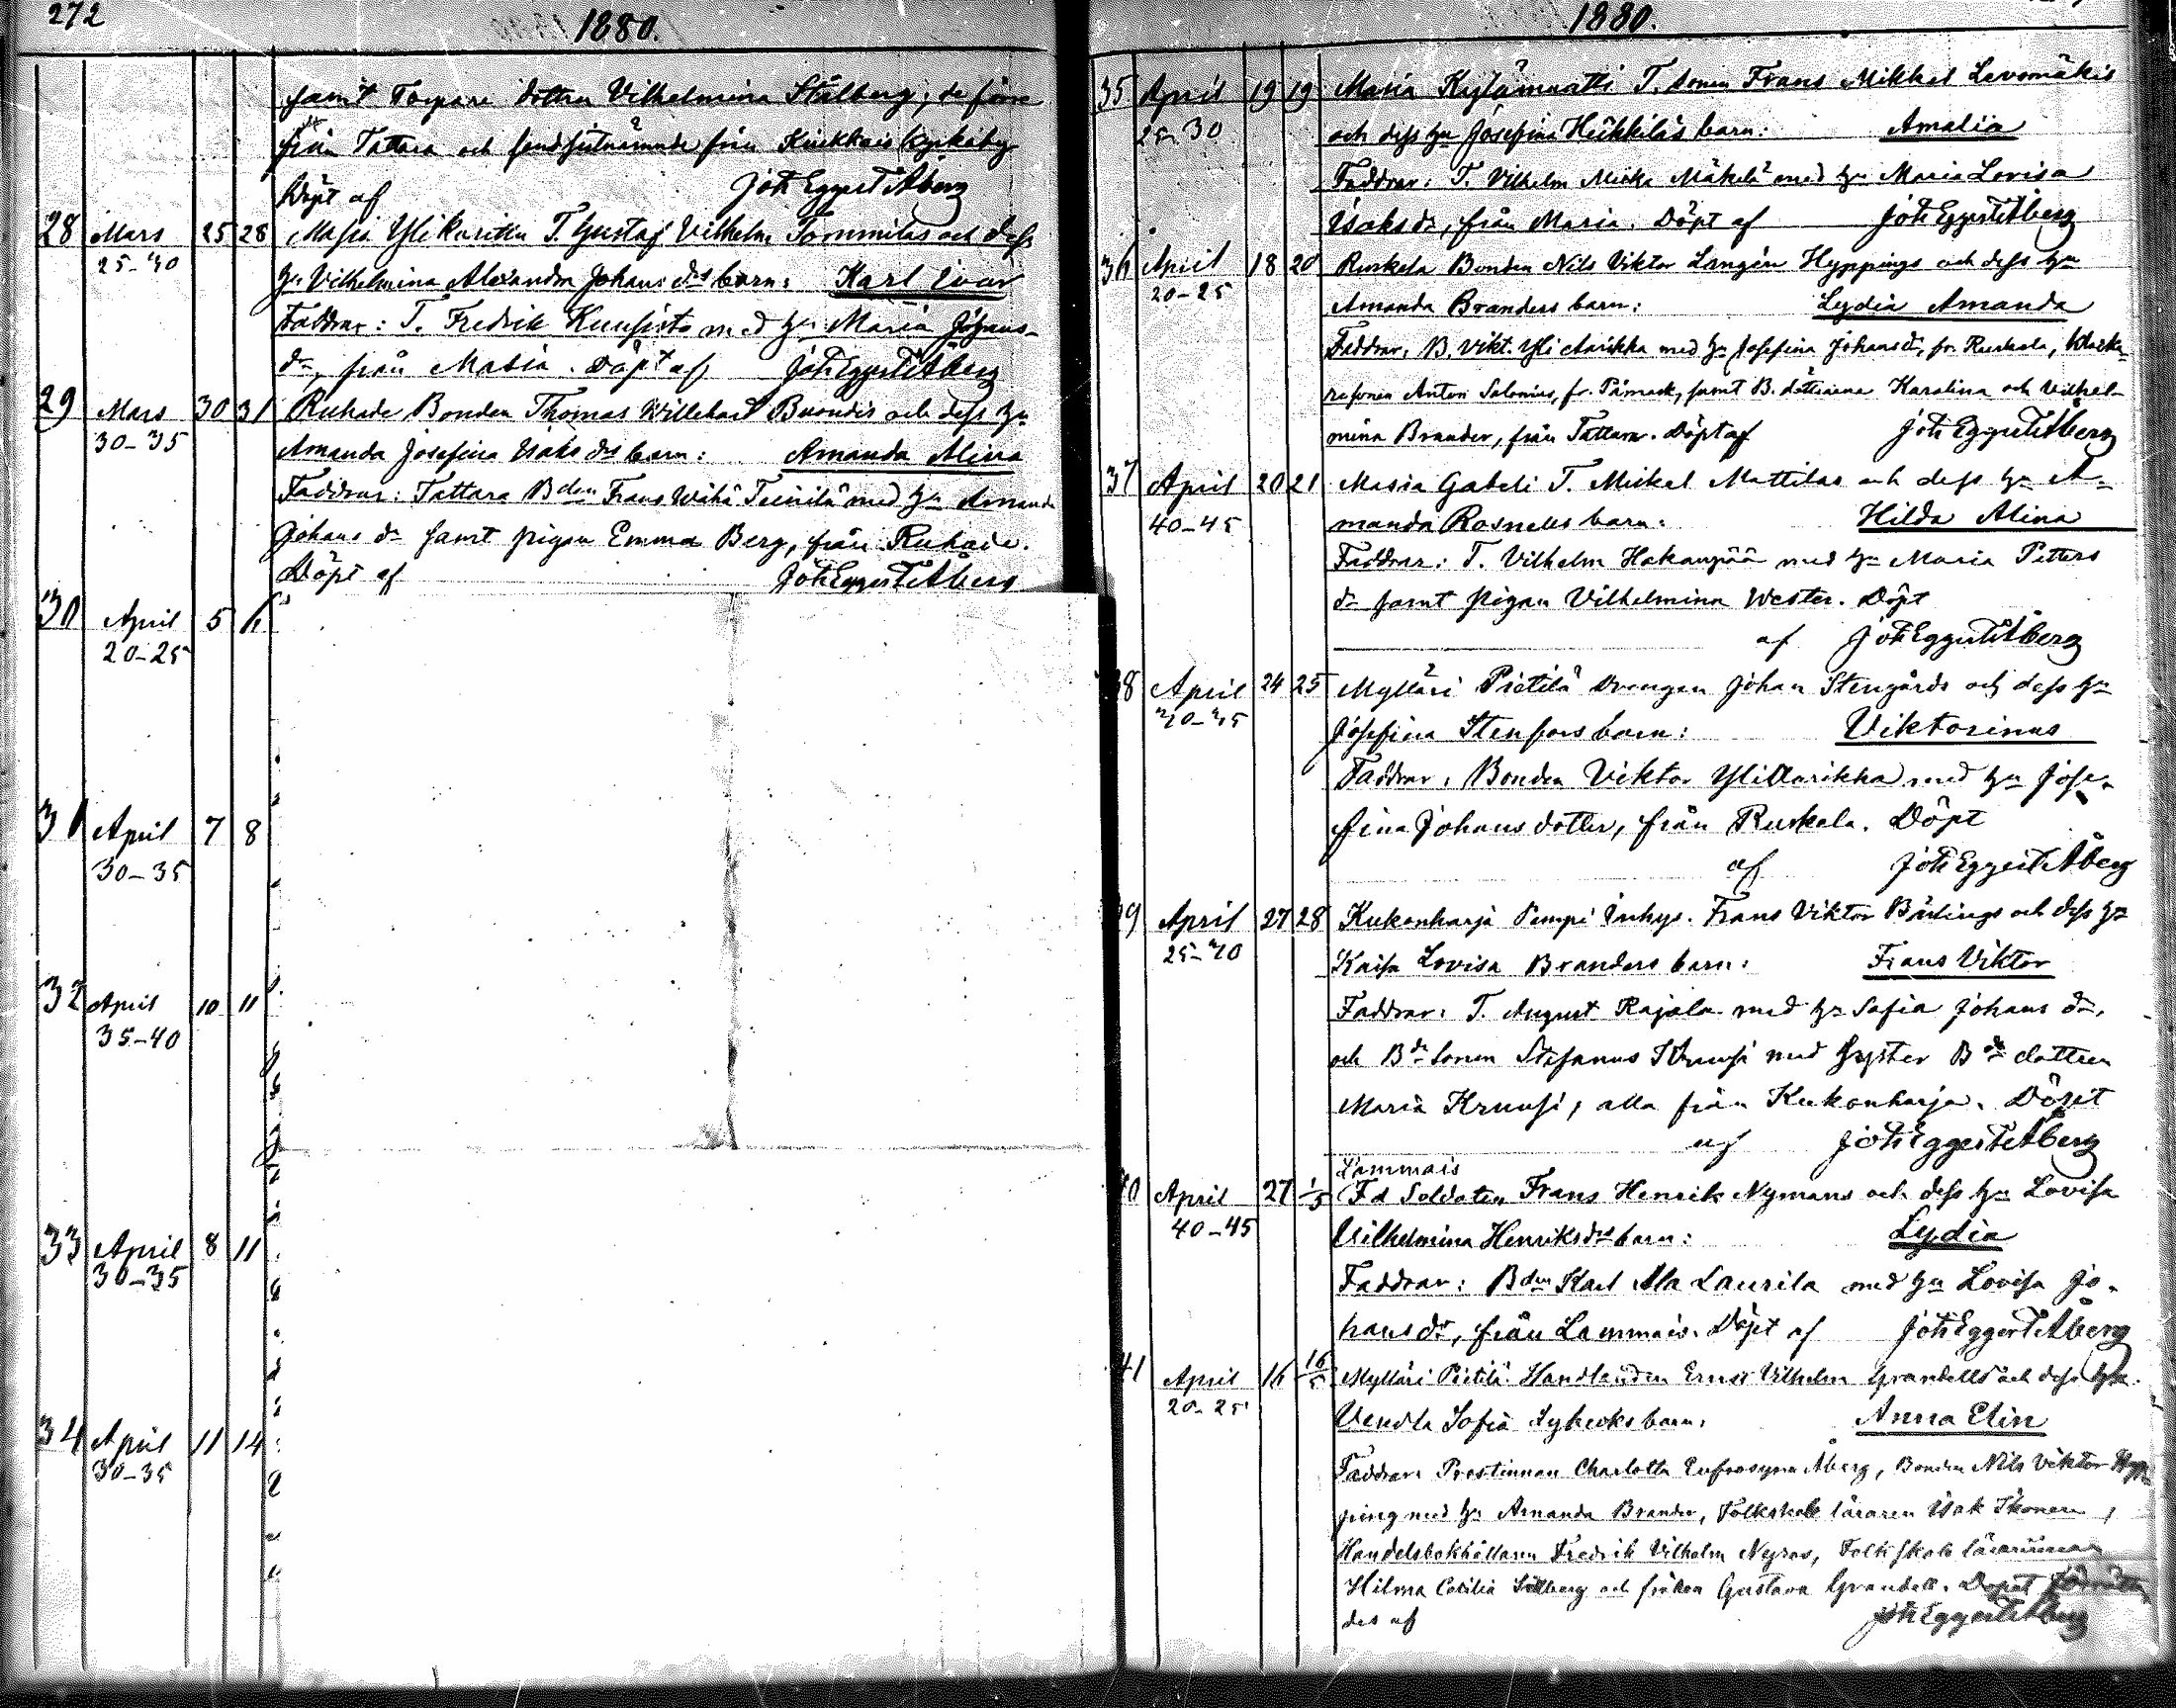 272
1880.
samt Torpare dottren Vilhelmina Stålberg; de förre
från Tattara och sendsistnämnde från Kyrkoby
Döpt af Joh Eggert Åberg
28 Mars 25 28 Masia Ylikaritin T. Gustaf Vilhelm Tommilas och dess
25-30 hu Vilhelmina Alexandra Johans ds barn: Karl Ivar
Faddrar: T. Fredrik Kuusisto med hu Maria Johans-
dr, från Masia. Döpt af Joh Eggert Åberg
29 Mars 30 31 Ruhade Bonden Thomas Willehard Buondis och dess hu
30-35 Amanda Josefina Isaks ds barn: Amanda Alina
Faddrar: Tattara Bden Frans Wähä Teinilä med hu Amanda
Johans dr samt pigan Emma Berg, från Ruhade.
Döpt af Joh Eggert Åberg
30 April 5 6
20-25
31 April 7 8
30-35
32 April 10 11
35-40
33 April 8 11
30-35
34 April 11 14
30-35
1880.
35 April 19 19 Masia Kylämatti T. sonen Frans Mikkel Levomäkis
25-30 och dess hu Josefina Heikkiläs barn: Amalia
Faddrar: T. Vilhelm Mäkelä med hu Maria Lovisa
Isaks dr, från Masia. Döpt af Joh Eggert Åberg
36 April 18 20 Ruskela Bonden Nils Viktor Hyppings och dess hu
20-25 Amanda Branders barn: Lydia Amanda
Faddrar, B. Vikt. Yli Marikka med hu Josefina Johans dr, fr. Ruskela,
Anton Salonius, fr. samt B. döttrarne Karolina och Vilhel-
mina Brander, från Tattara. Döpt af Joh Eggert Åberg
37 April 20 21 Masia Gabeli T. Mickel Mattilas och dess hu A-
40-45 manda Rosnells barn: Hilda Alina
Faddrar: T. Vilhelm Hakanpää med hu Maria Petters
dr samt pigan Vilhelmina Wester. Döpt
af Joh Eggert Åberg
38 April 24 25 Mylläri Pietilä Drengen Johan Stengårds och dess hu
30-35 Josefina Stenfors barn: Viktorinus
Faddrar: Bonden Viktor Ylitarikka med hu Jose-
fina Johans dotter, från Ruskela. Döpt
af Joh Eggert Åberg
39 April 27 28 Kukonharja Pempi Inhys. Frans Viktor Bärlings och dess hu
25-30 Kaisa Lovisa Branders barn: Frans Viktor
Faddrar: T. August Rajala med hu Sofia Johans dr,
och Bde sonen Stefanus Kruusi med syster Bde dottren
Maria Kruusi, alla från Kukonharja. Döpt
af Joh Eggert Åberg
Lammais
40 April 27 1/5 Fd Soldaten Frans Henrik Nymans och dess hu Lovisa
40-45 Vilhelmina Henriksdrs barn: Lydia
Faddrar: Bden Karl Ala Laurila med hu Lovisa Jo-
hans dr, från Lammais. Döpt af Joh Eggert Åberg
41 April 16 16/5 Mylläri Pietilä Handlanden Ernst Vilhelm Grandells och dess hu
20-25 Vendla Sofia barn: Anna Elin
Faddrar: Prostinnan Charlotta Eufrosyna Åberg, Bonden Nils Viktor Hyp-
ping med hu Amanda Brander, Folkskole läraren Isak Ikonen,
Handelsbokhållaren Fredrik Vilhelm Nyros, Folkskole lärarinnan
Hilma Cecilia och fröken Gustava Grandell. Döpet förrätta-
des af Joh Eggert Åberg